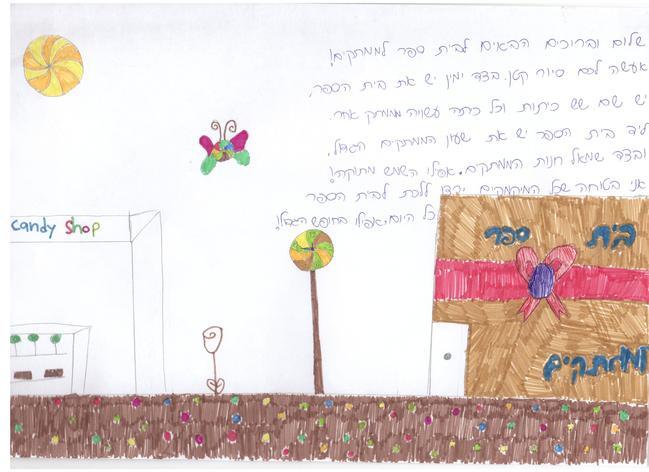 שלום וברוכים הבאים לבית ספר לממתקים!
אעשה לכם סיור קטן. בצד ימין יש את בית הספר,
יש שם שש כיתות וכל כתה עשויה ממתק אחר.
ליד בית הספר יש את שעון הממתקים הגדול.
ובצד שמאל חנות הממתקים. אפילו השמש מתוקה!
אני בטוחה שכל המתקתקים ירצו ללכת לבית הספר
כל היום, אפילו בחופש הגדול!
candy Shop
בית ספר
לממתקים